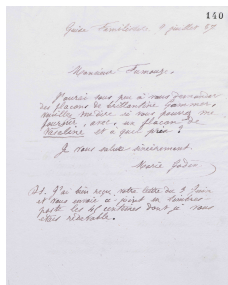 140
Guise Familistère 8 juillet 97
Monsieur Fumouze,
J'aurai sous peu à vous demander
des flacons de brillantine
veuillez me dire si vous pourrez me
fournir, avec, un flacon de
vaseline et à quel prix ?
Je vous salue sincèrement.
Marie Godin
J'ai bien reçu votre lettre du 9 Juin
et vous envoie ci-joint en timbres-
poste les 45 centimes dont je vous
étais redevable.